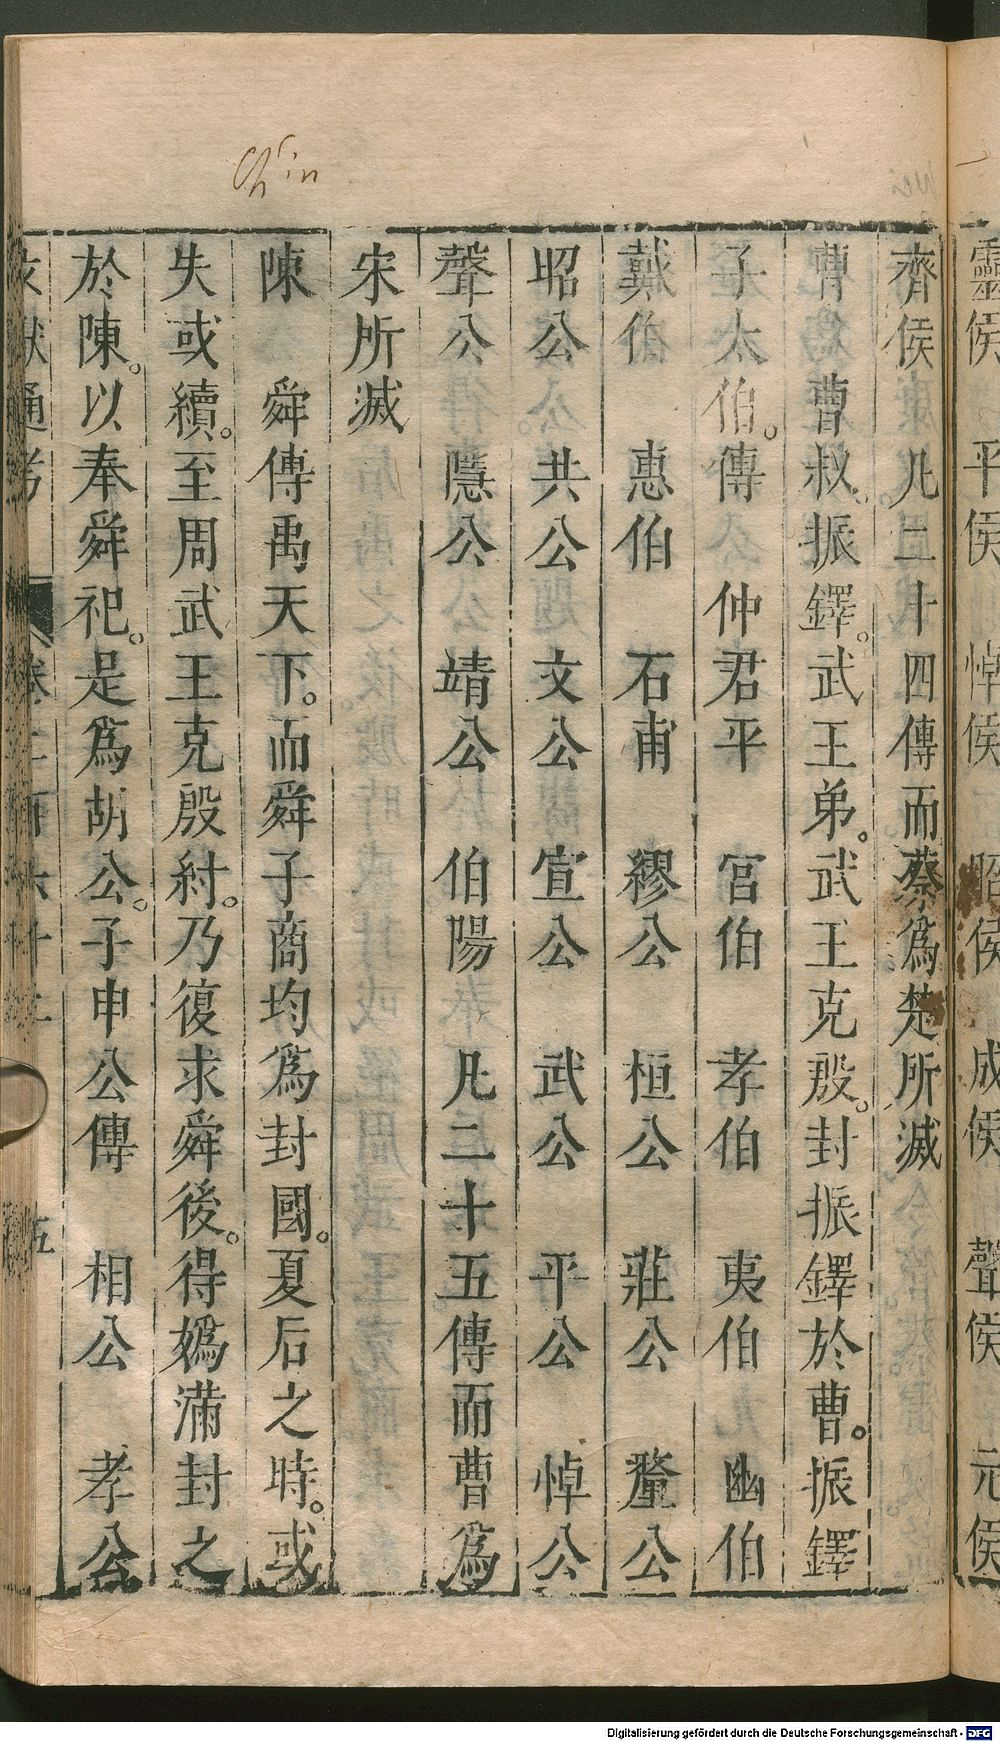 靈侯　平侯　悼侯　昭侯　成侯　聲侯　元侯
齊侯　凡二十四傳而蔡爲楚所滅
曹　曹叔振鐸。武王弟。武王克殷。封振鐸於曹。振鐸
子太伯。傳　仲君平　宮伯　孝伯　夷伯　幽伯
戴伯　惠伯　石甫　繆公　桓公　莊公　釐公
昭公　共公　文公　宣公　武公　平公　悼公
聲公　隱公　靖公　伯陽　凡二十五傳而曹爲
宋所滅
Ch'in
陳　舜傳禹天下。而舜子商均爲封國。夏后之時。或
失或續。至周武王克殷紂。乃復求舜後。得媯滿封之
於陳。以奉舜祀。是爲胡公。子申公傳　相公　孝公
通考　五
Digitalisierung gefördert durch die Deutsche Forschungsgemeinschaft - DFG